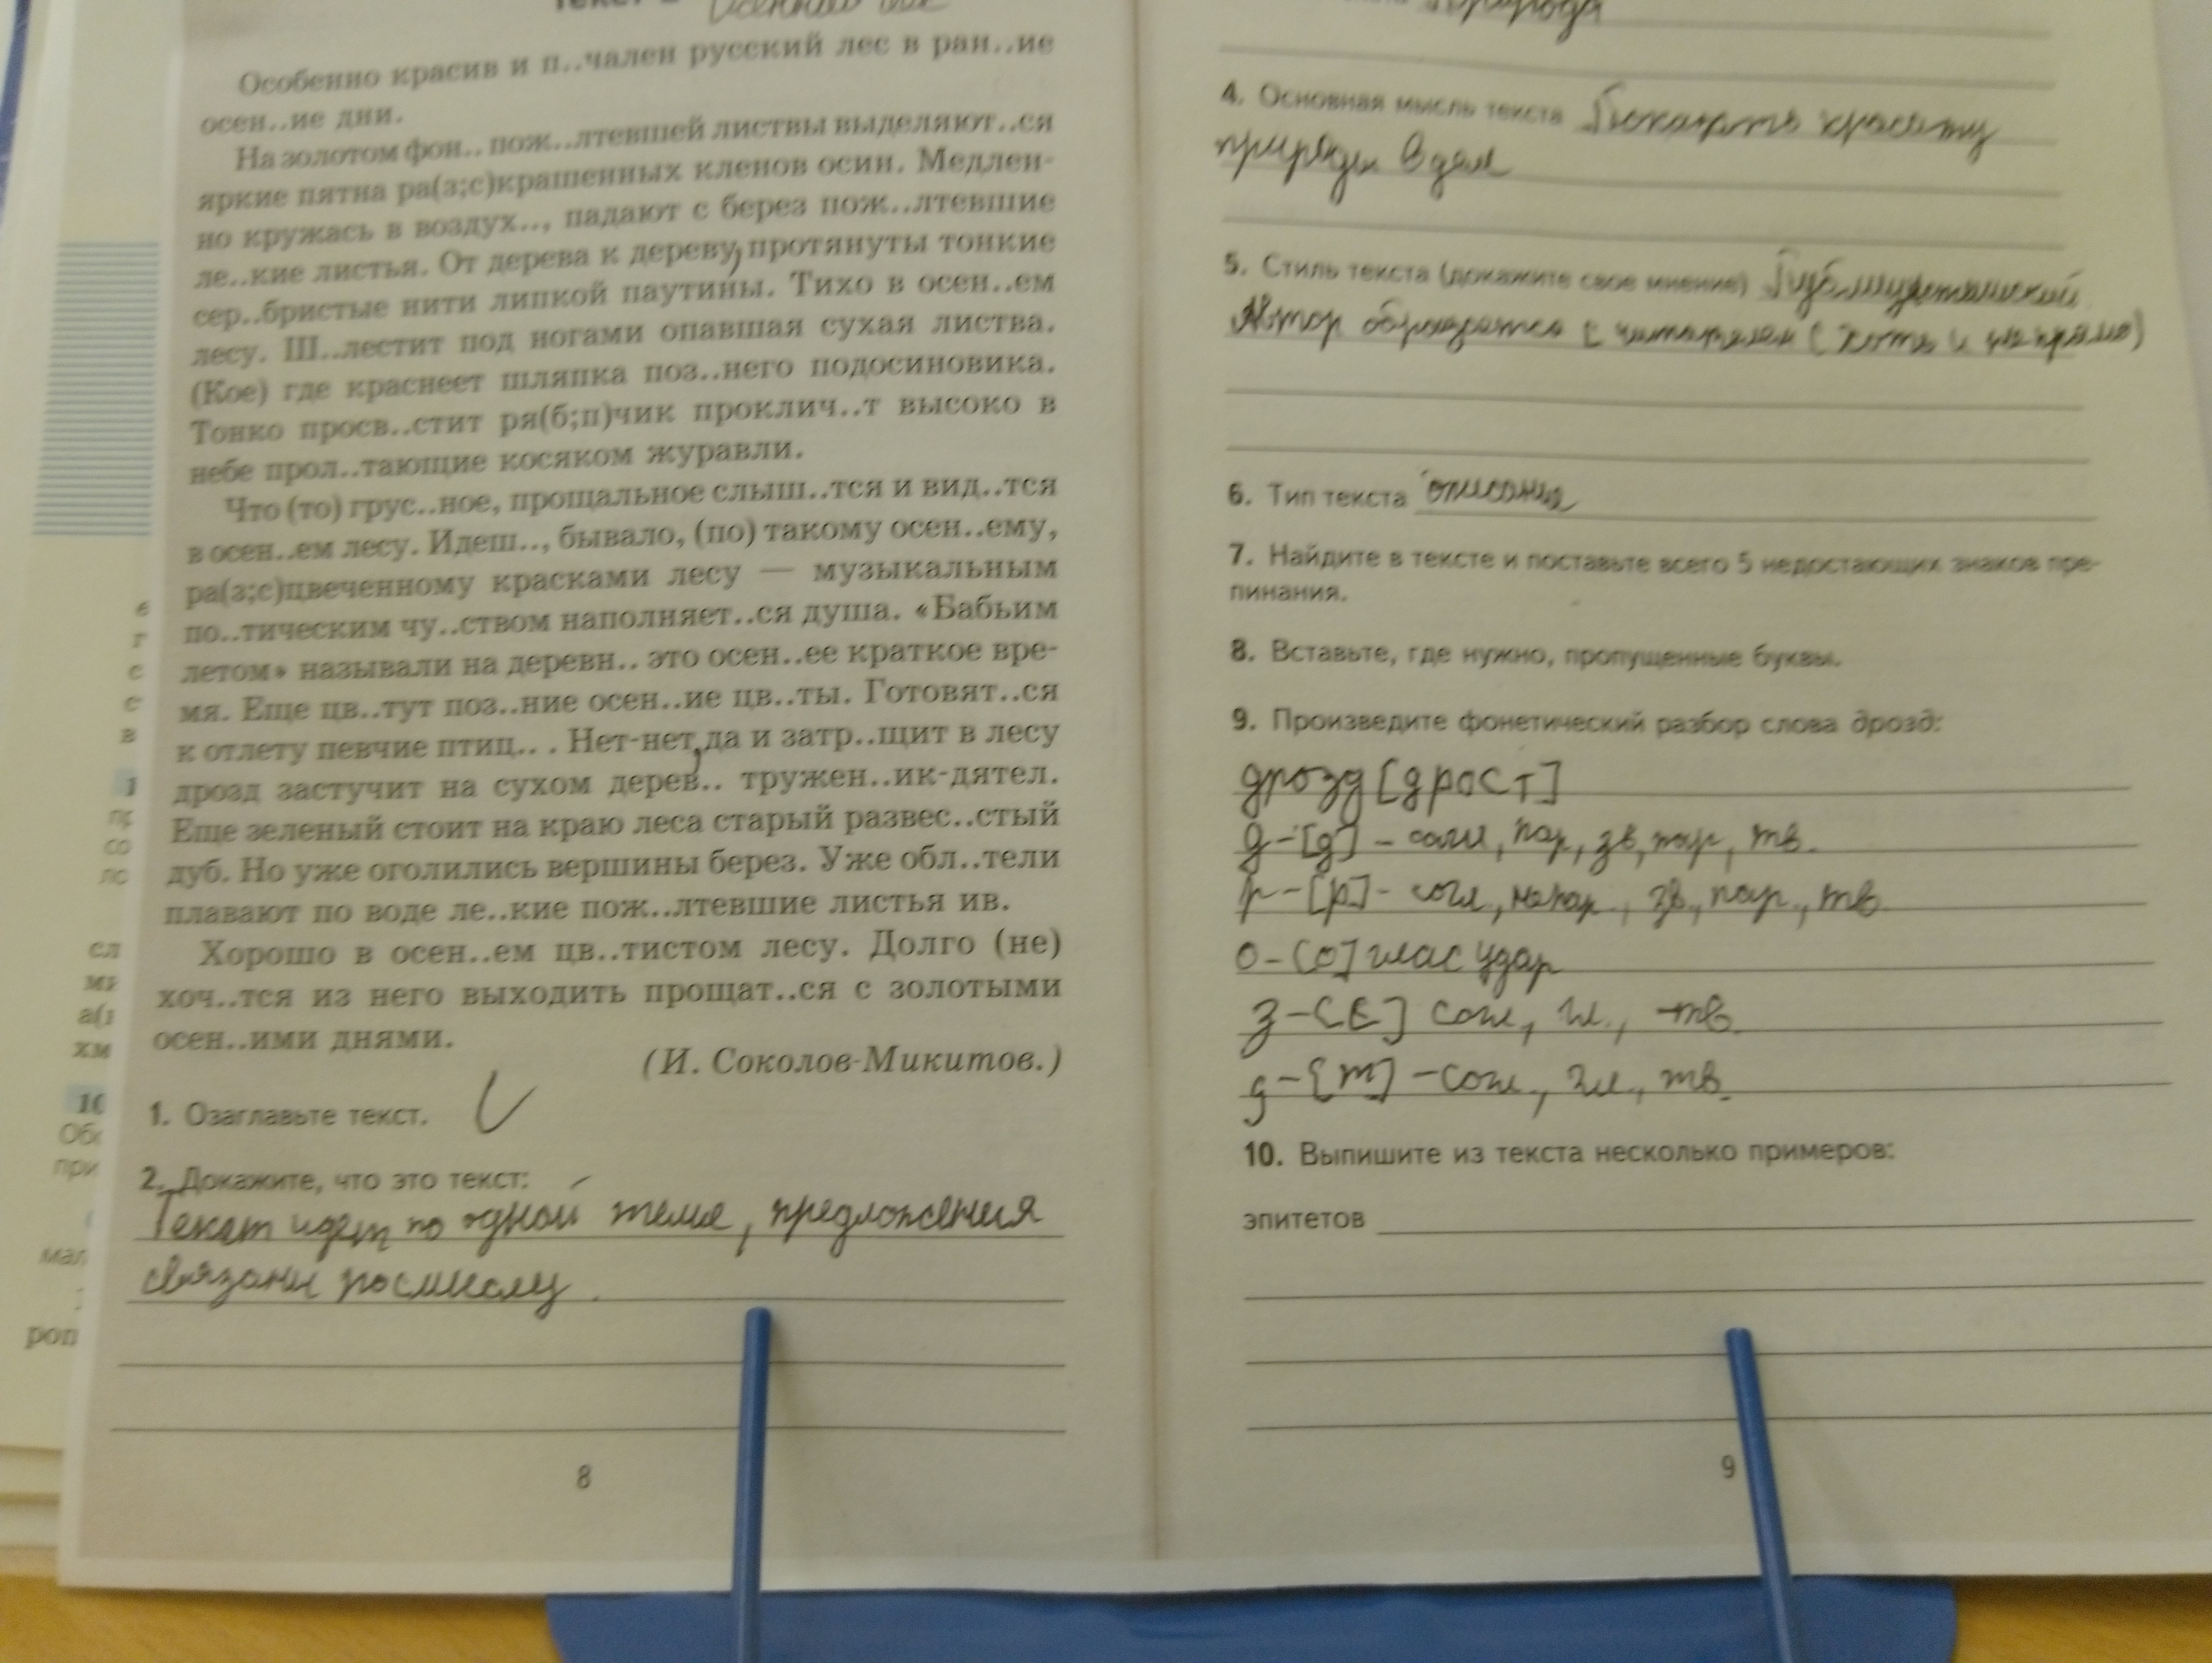 Текст 2 Осенний лес
Особенно красив и п..чален русский лес в ран..ие
осен..ие дни.
На золотом фон.. пож..лтевшей листвы выделяют..ся
яркие пятна ра(з;с)крашенных кленов осин. Медлен-
но кружась в воздух.., падают с берез пож..лтевшие
ле..кие листья. От дерева к дереву, протянуты тонкие
сер..бристые нити липкой паутины. Тихо в осен..ем
лесу. Ш..лестит под ногами опавшая сухая листва.
(Кое) где краснеет шляпка поз..него подосиновика.
Тонко просв..стит ря(б;п)чик проклич..т высоко в
небе прол..тающие косяком журавли.
Что (то) грус..ное, прощальное слыш..тся и вид..тся
в осен..ем лесу. Идеш.., бывало, (по) такому осен..ему,
ра(з;с)цвеченному красками лесу — музыкальным
по..тическим чу..ством наполняет..ся душа. «Бабьим
летом» называли на деревн.. это осен..ее краткое вре-
мя. Еще цв..тут поз..ние осен..ие цв..ты. Готовят..ся
к отлету певчие птиц.. . Нет-нет, да и затр..щит в лесу
дрозд застучит на сухом дерев.. тружен..ик-дятел.
Еще зеленый стоит на краю леса старый развес..стый
дуб. Но уже оголились вершины берез. Уже обл..тели
плавают по воде ле..кие пож..лтевшие листья ив.
Хорошо в осен..ем цв..тистом лесу. Долго (не)
хоч..тся из него выходить прощат..ся с золотыми
осен..ими днями.
(И. Соколов-Микитов.)
1. Озаглавьте текст.
2. Докажите, что это текст:
Текст идет по одной теме, предложения
связаны по смыслу.
8
Природа
4. Основная мысль текста Показать красоту
природы
5. Стиль текста (докажите свое мнение) Публицистический
Автор обращается с читателем (хоть и не прямо)
6. Тип текста описание
7. Найдите в тексте и поставьте всего 5 недостающих знаков пре-
пинания.
8. Вставьте, где нужно, пропущенные буквы.
9. Произведите фонетический разбор слова дрозд:
дрозд [дрост]
д-[д] - согл, пар, зв, пар, тв.
р-[р]- согл., непар., зв., пар., тв.
о-[о] глас удар
з-[с] согл, гл., тв.
д-[т] -согл., гл., тв.
10. Выпишите из текста несколько примеров:
эпитетов
9